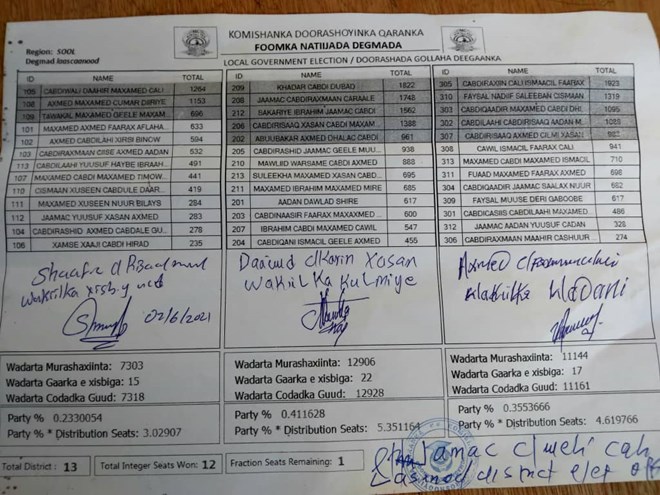 KOMISHANKA DOORASHOYINKA QARANKA
FOOMKA NATIIJADA DEGMADA
LOCAL GOVERNMENT ELECTION / DOORASHADA GOLLAHA DEEGAANKA
Region: SOOL
Degmad laascaanood
ID NAME TOTAL
105 CABDIWALI DAAHIR MAXAMED CALI 1264
108 AXMED MAXAMED CUMAR DIIRIYE 1153
109 TAWAKAL MAXAMED GEELE MAXAM 696
101 MAXAMED AXMED FAARAX AFLAHA 633
102 AXMED CABDILAHI XIRSI BINOW 594
103 CABDIRAXMAAN CIISE AXMED AADAN 532
113 CABDILAHI YUUSUF HAYBE IBRAAH 491
107 MAXAMED CABDI MAXAMED 441
110 CISMAAN XUSEEN CABDULE DAAR 419
111 MAXAMED XUSEEN NUUR BILAYS 284
112 JAAMAC YUUSUF XASAN AXMED 283
104 CABDIRASHID AXMED CABDALE GU 278
106 XAMSE XAAJI CABDI HIRAD 235
ID NAME TOTAL
209 KHADAR CABDI DUBAD 1822
208 JAAMAC CABDIRAXMAAN CARAALE 1748
212 SAKARIYE IBRAHIM JAAMAC CABDI 1562
206 CABDIRISAAQ XASAN CABDI MAXAM 1388
202 ABUUBAKAR AXMED DHALAC CABDI 961
205 CABDIRASHID JAAMAC GEELE MUU 938
210 MAWLIID WARSAME CABDI AXMED 888
213 SULEEKHA MAXAMED XASAN CABD 695
211 MAXAMED IBRAHIM MAXAMED MIRE 685
201 AADAN DAWLAD SHIRE 617
203 CABDINAASIR FAARAX MAXAXMED 600
207 IBRAHIM MAXAMED CABDI 547
204 CABDIQANI ISMACIIL GEELE AXMED 455
ID NAME TOTAL
305 CABDIRAXIIN CALI ISMAACIIL FAARAX 1923
310 FAYSAL NADIIF SALEEBAN CISMAAN 1319
303 CABDIQAADIR MAXAMED CABDI DHI 1095
302 CABDILAAHI CABDIRISAAQ AADAN M 1088
307 CABDIRISAAQ AXMED CILMI XASAN
308 CAWIL ISMACIIL FAARAX CALI 941
313 MAXAMED CABDI MAXAMED ISMACIIL 710
311 FUAAD MAXAMED AXMED FAARAX 698
304 CABDIQAADIR JAAMAC SAALAX NUUR 682
309 FAYSAL MUUSE DERI QABOOBE 617
301 CABDICASIIS CABDILAAHI MAXAMED 486
312 JAAMAC AADAN YUUSUF CADAN 328
306 CABDIRAXMAAN MAAHIR CASHUUR 274
wakiilka xisbiga ucid
02/6/2021
Daauud Xasan
wakiilka Kulmiye
Axmed
wakiilka Wadani
Wadarta Murashaxiinta: 7303
Wadarta Gaarka e xisbiga: 15
Wadarta Codadka Guud: 7318
Wadarta Murashaxiinta: 12906
Wadarta Gaarka e xisbiga: 22
Wadarta Codadka Guud: 12928
Wadarta Murashaxiinta: 11144
Wadarta Gaarka e xisbiga: 17
Wadarta Codadka Guud: 11161
Party % 0.2330054
Party % * Distribution Seats: 3.02907
Party % 0.411628
Party % * Distribution Seats: 5.351164
Party % 0.3553666
Party % * Distribution Seats: 4.619766
Total District : 13
Total Integer Seats Won: 12
Fraction Seats Remaining: 1
Jamac cweli cab
district